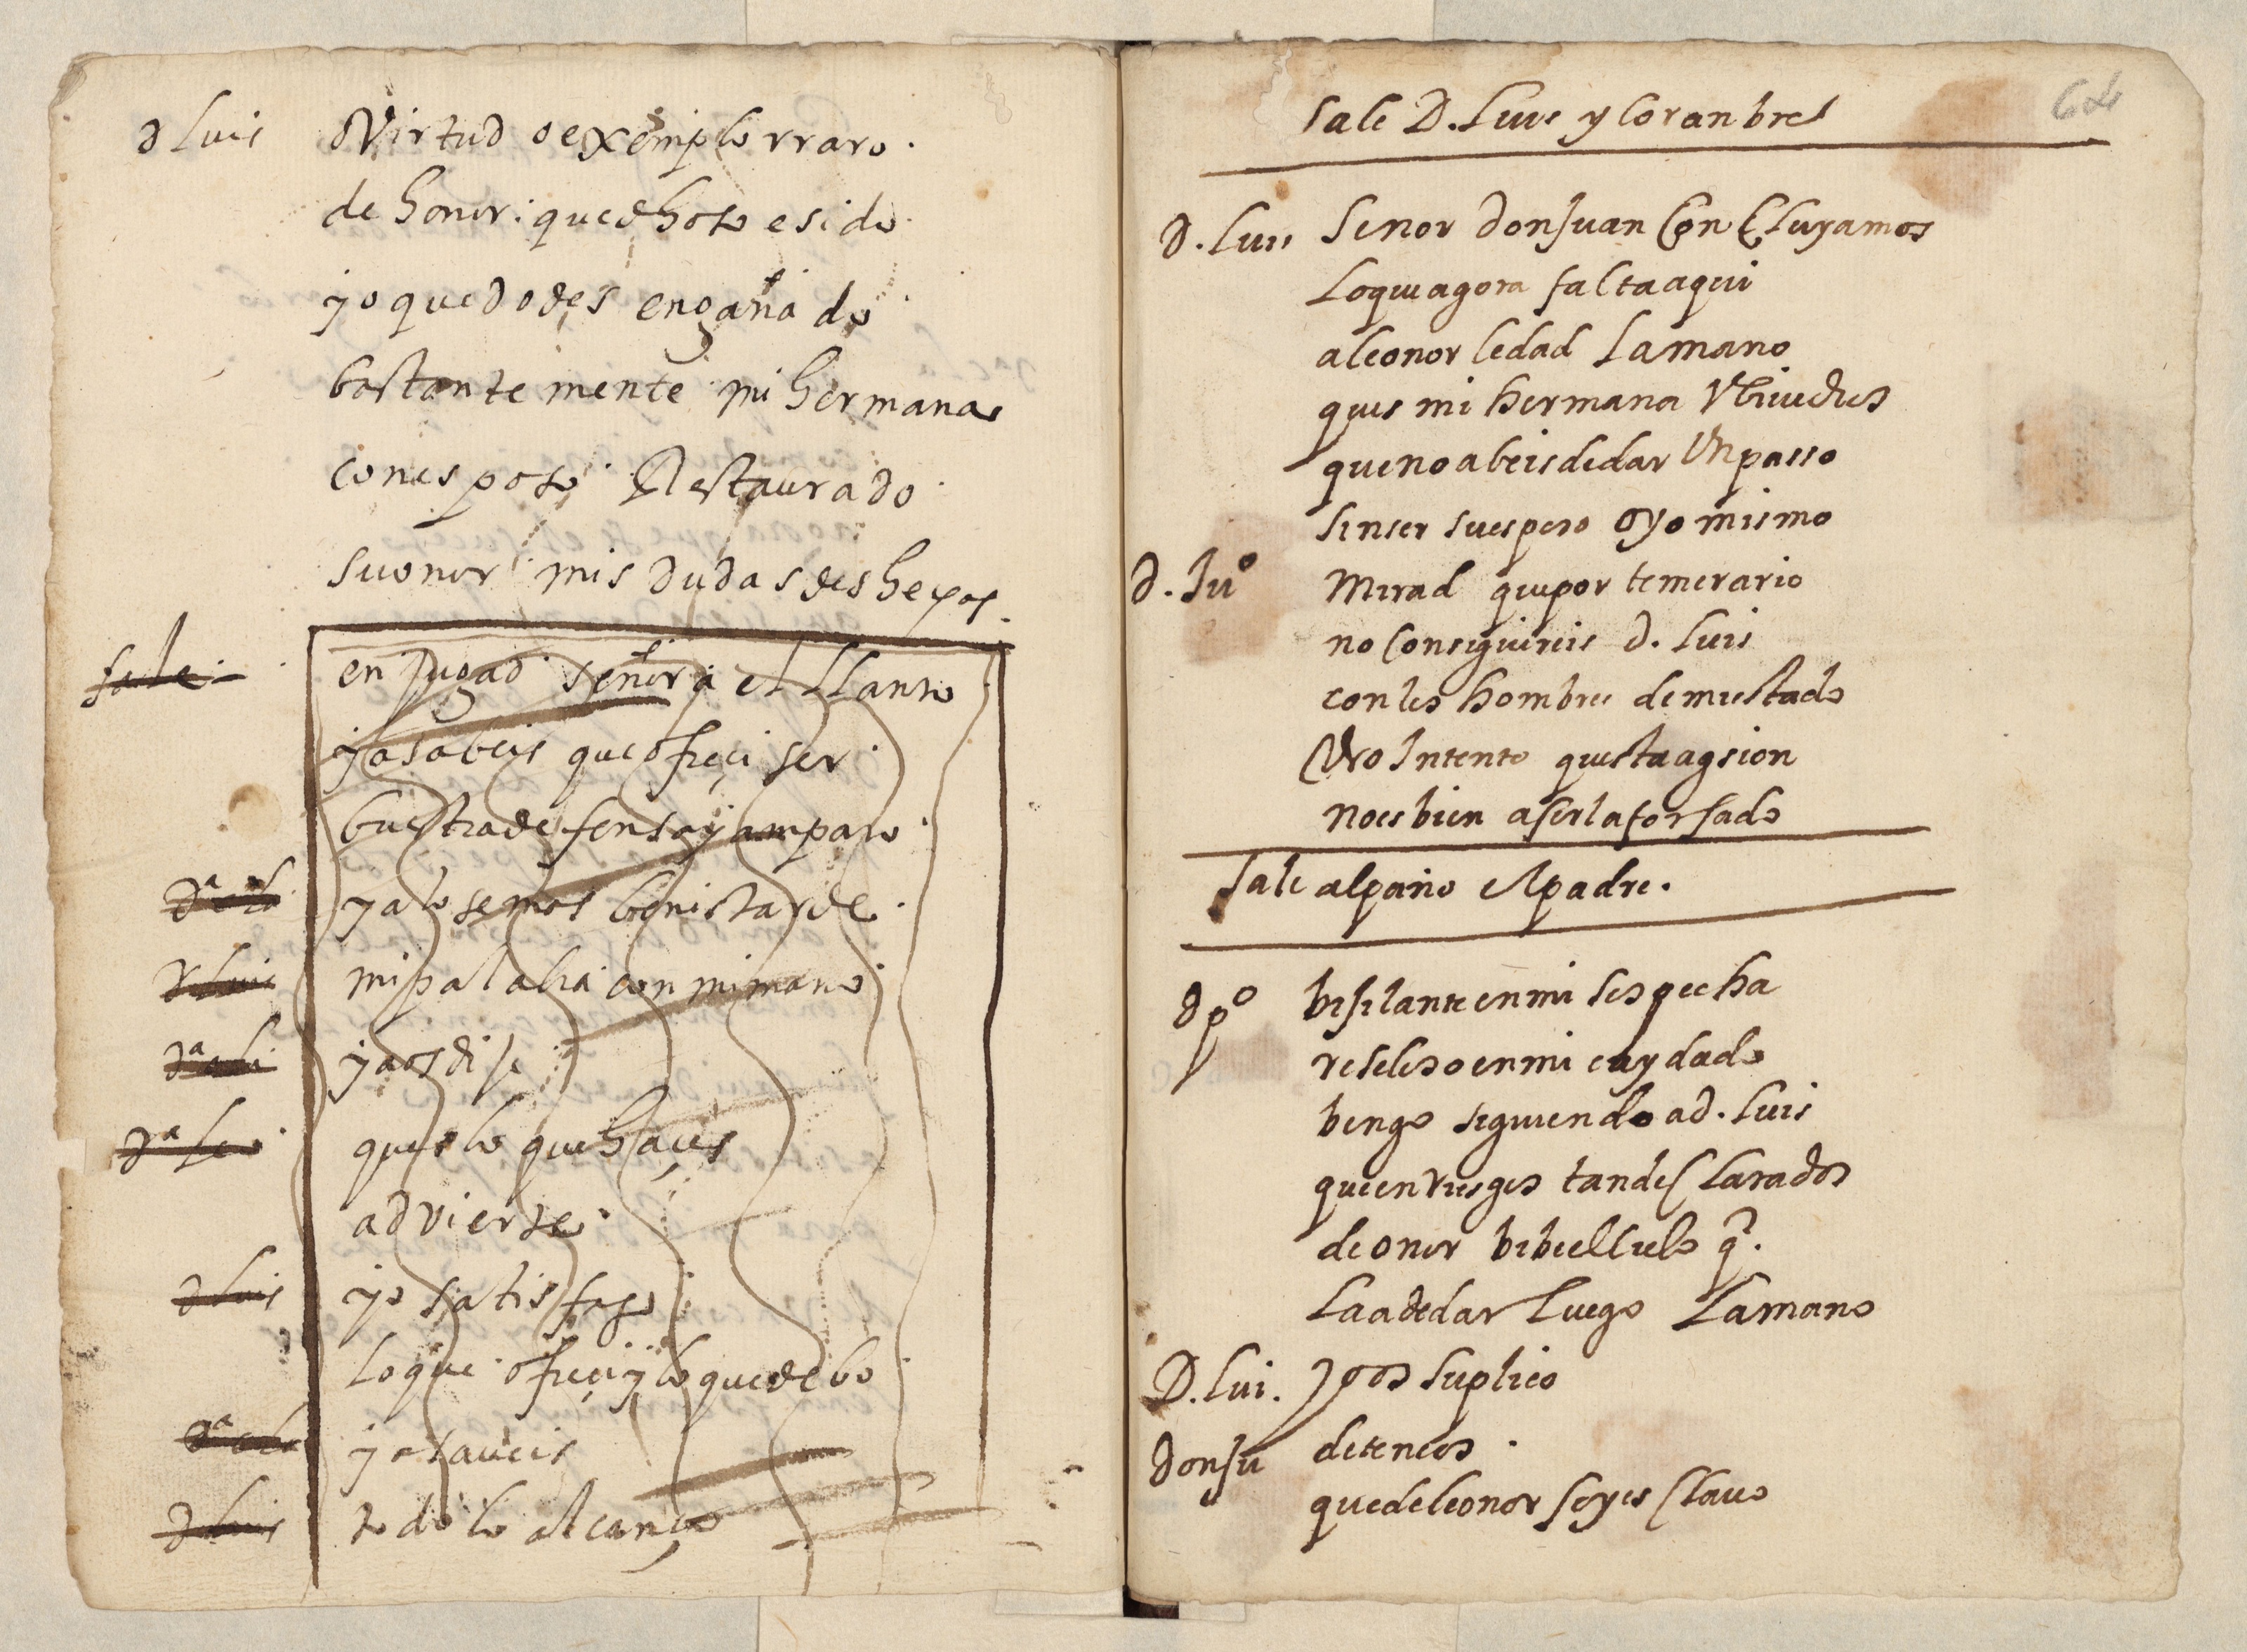 d luis oVirtud o exemplo rraro.
de honor: que dhoso e sido
yo quedo des engañado
bastante mente mi hermana
con esposo Restaurado
su onor mis dudas deshechas.
sale enjugad señora el llanto
ya sabeis que ofreçi ser
buestra defensa y amparo
ya lo se mas benis tarde
d luis mi palabra con mi mano
ya os dije
dª leo ques lo que haçes
advierte
d luis yo satisfago
lo que ofreçi y lo que debo
ya saueis
d luis todo lo alcanço
64
Sale D. Luis y coranbres
D. Luis Senor don Juan Concluyamos
lo que agora falta aqui
a leonor le dad la mano
ques mi hermana
que no abeis de dar Un passo
sin ser su esposo o yo mismo
D. Juº Mirad que por temerario
no Conseguireis d. Luis
con los hombres de mi estado
Otro Intento questa agsion
no es bien aserla forsado
Sale al paño el padre.
dpº bijilante en mi sospecha
reseloso en mi cuydado
bengo siguiendo a d. Luis
que en riesgos tan desclarados
de onor bibe el lielo q̃.
la a de dar luego la mano
D. Lui. yo os suplico
don Ju deteneos.
que de leonor soy esclauo